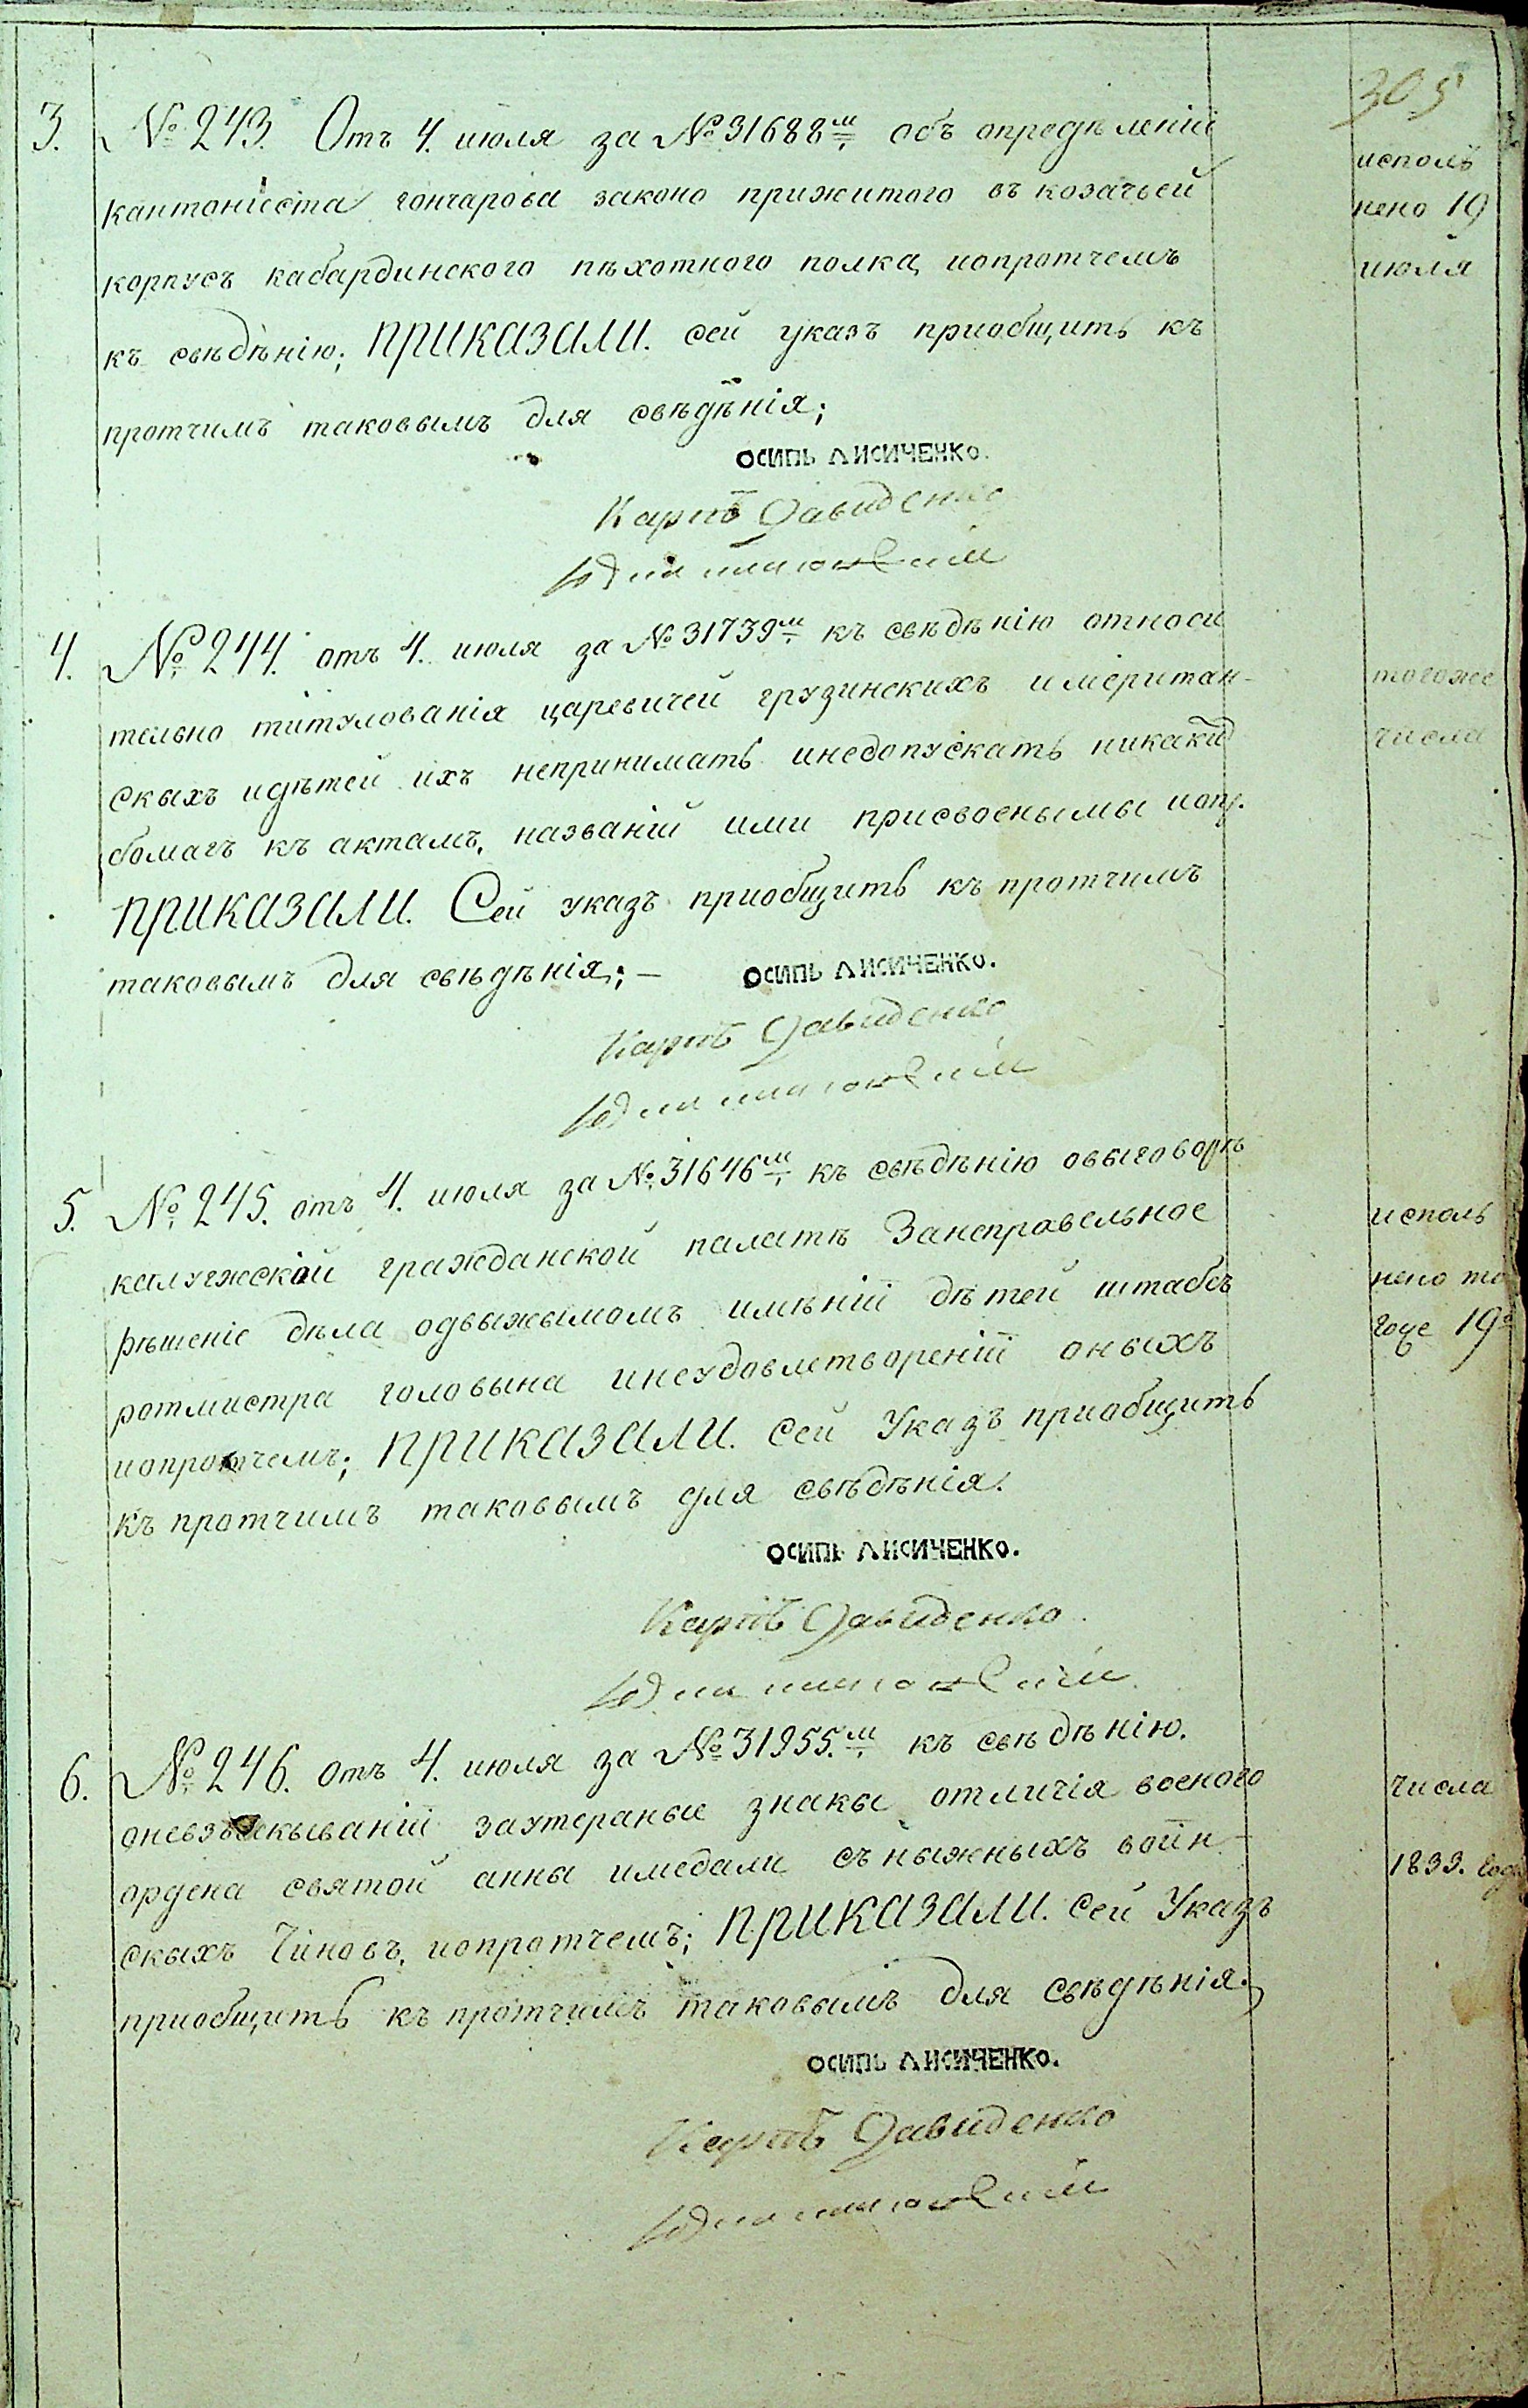 305
3. № 243. Отъ 4. июля за № 31688м объ опредѣленіи
кантониста гончарова законо прижитого въ козачьей
корпусъ кабардинского пѣхотного полка, иопротчемъ
къ свѣдѣнію; ПРИКАЗАЛИ. сей указъ приобщить къ
протчимъ таковымъ для свѣдѣнія;
исполь
нено 19
июля
ОСИПЬ ЛИСИЧЕНКО.
Карпъ Давиденко
4. № 244. отъ 4. июля за № 31739м къ свѣдѣнію относи
тельно титулованія царевичей грузинскихъ имеритан-
скыхъ идѣтей ихъ непринимать инедопускать никакий
бомагъ къ актамъ, названій ими присвоенымы иопр.
ПРИКАЗАЛИ. Сей указъ приобщить къ протчимъ
таковымъ для свѣдѣнія; —
тогоже
числа
ОСИПЬ ЛИСИЧЕНКО.
Карпъ Давиденко
5. № 245. отъ 4. июля за № 31646м къ свѣдѣнію овыговорѣ
калужской гражданской палатѣ Занеправельное
рѣшеніе дѣла одвыжымомъ имѣніи дѣтей штабсъ
ротмистра головына инеудовлетвореніи оныхъ
иопротчемъ; ПРИКАЗАЛИ. сей Указъ приобщить
къ протчимъ таковымъ для свѣдѣнія.
исполь
нено то
гоже 19
ОСИПЬ ЛИСИЧЕНКО.
Карпъ Давиденко
6. № 246. Отъ 4. июля за № 31955.м къ свѣдѣнію.
оневзыскываніи заутераные знакы отличія военого
ордена святой анны имедали съ ныжныхъ воин-
скыхъ Чиновъ, иопротчемъ; ПРИКАЗАЛИ. сей Указъ
приобщить къ протчимъ таковымъ для свѣдѣнія.
числа
1833. года
ОСИПЬ ЛИСИЧЕНКО.
Карпъ Давиденко